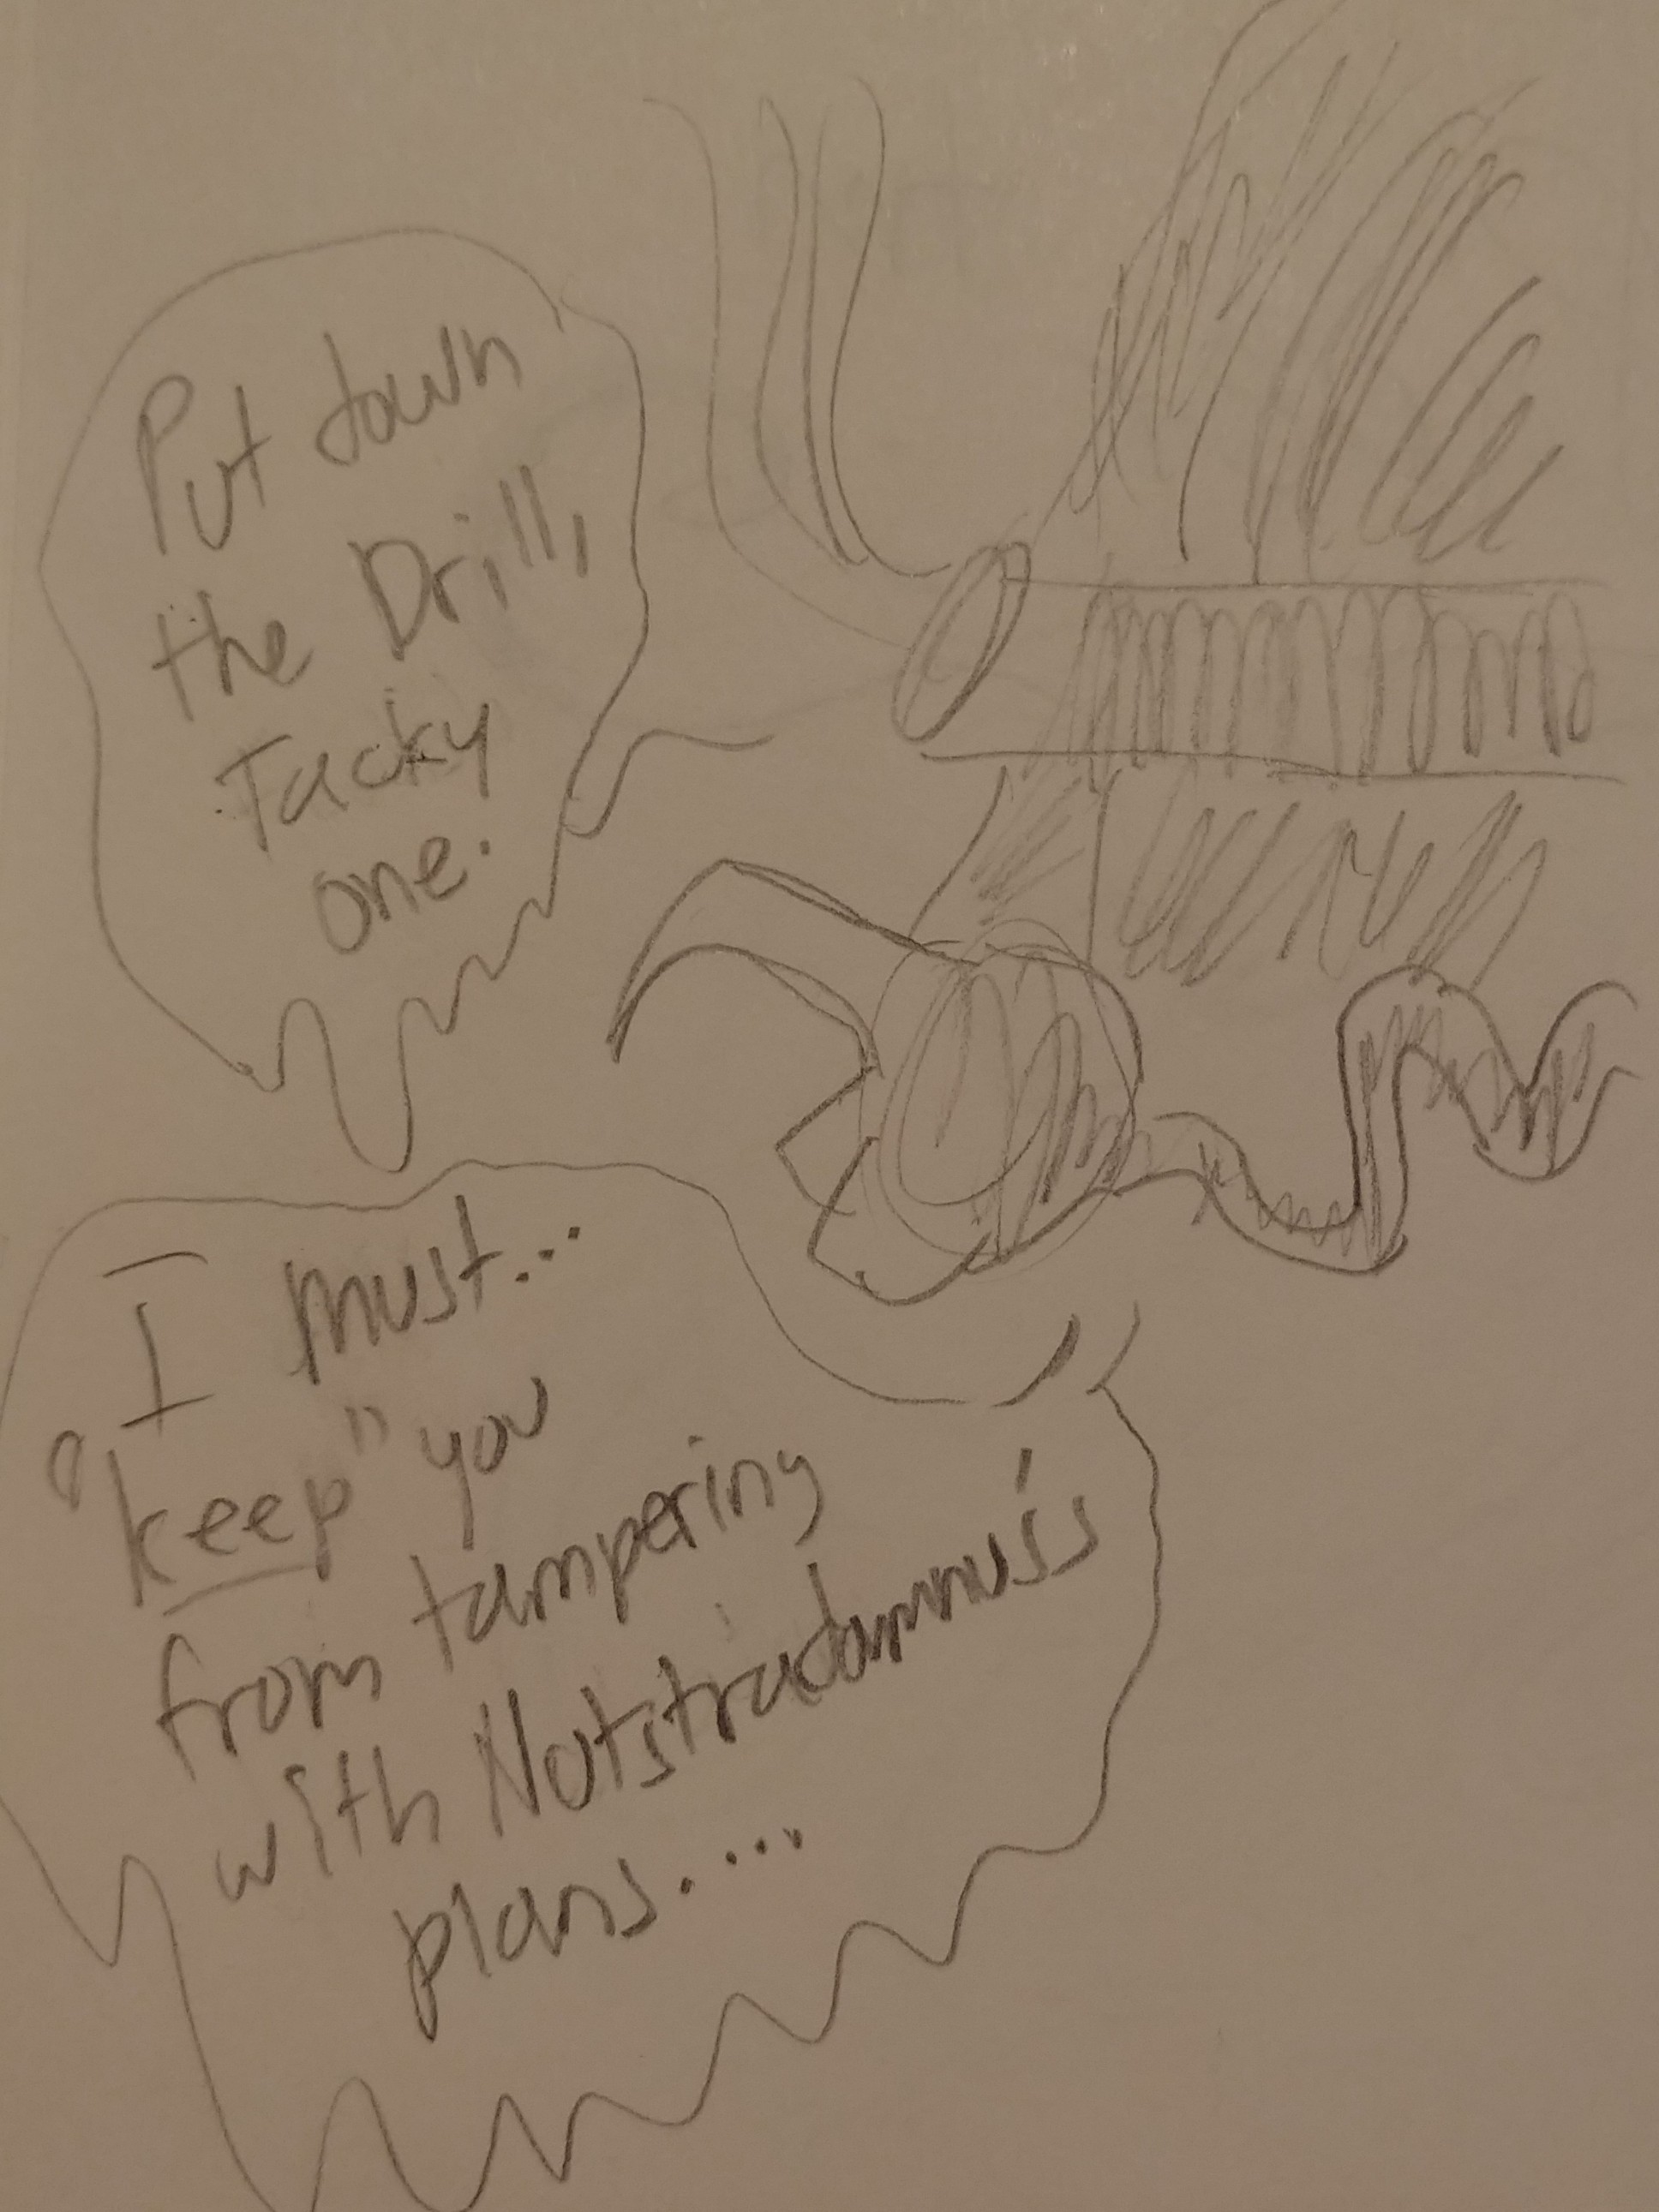 Put down
the Drill,
Tacky
one.
I must...
"keep" you
from tampering
with Notstradamnus's
plans....